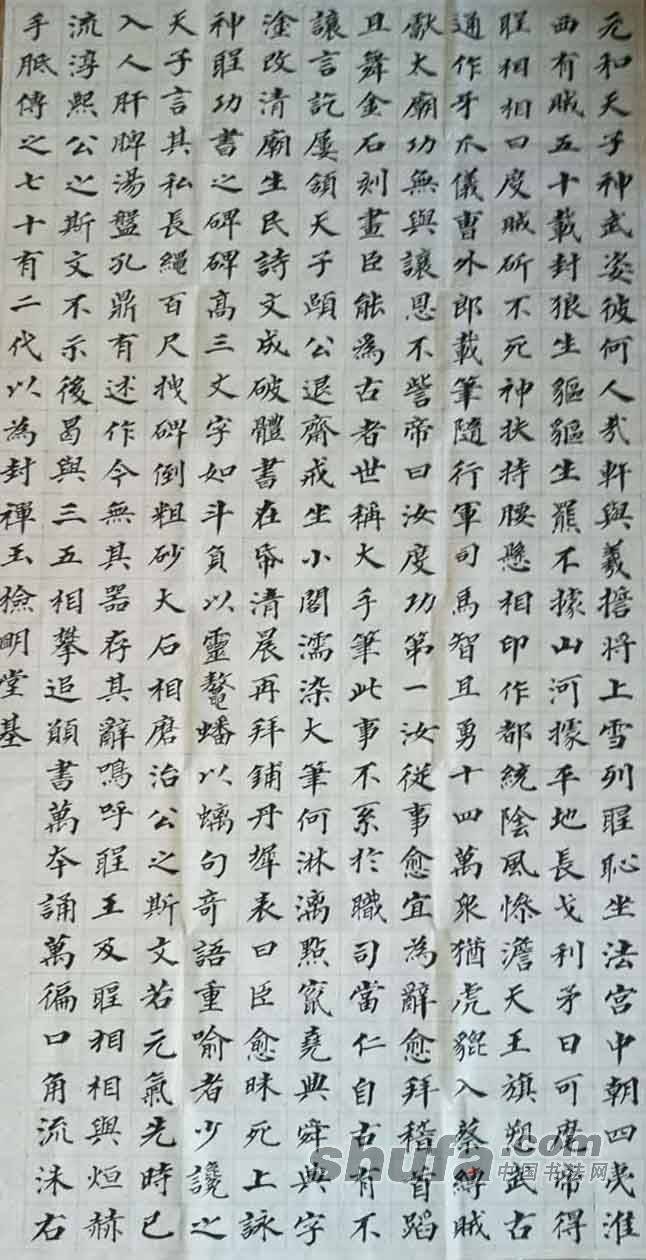 元和天子神武姿彼何人哉軒與羲誓將上雪列聖恥坐法宮中朝四夷淮
西有賊五十載封狼生貙貙生羆不據山河據平地長戈利矛日可麾帝得
聖相相曰度賊斫不死神扶持腰懸相印作都統陰風慘澹天王旗愬武古
通作牙爪儀曹外郎載筆隨行軍司馬智且勇十四萬眾猶虎貔入蔡縛賊
獻太廟功無與讓恩不訾帝曰汝度功第一汝從事愈宜為辭愈拜稽首蹈
且舞金石刻畫臣能為古者世稱大手筆此事不系於職司當仁自古有不
讓言訖屢頷天子頤公退齋戒坐小閣濡染大筆何淋漓點竄堯典舜典字
塗改清廟生民詩文成破體書在帋清晨再拜鋪丹墀表曰臣愈昧死上詠
神聖功書之碑碑高三丈字如斗負以靈鰲蟠以螭句奇語重喻者少讒之
天子言其私長繩百尺拽碑倒粗砂大石相磨治公之斯文若元氣先時已
入人肝脾湯盤孔鼎有述作今無其器存其辭嗚呼聖王及聖相相與烜赫
流淳熙公之斯文不示後曷與三五相攀追願書萬本誦萬徧口角流沫右
手胝傳之七十有二代以為封禪玉檢明堂基
shufa.com
中国书法网